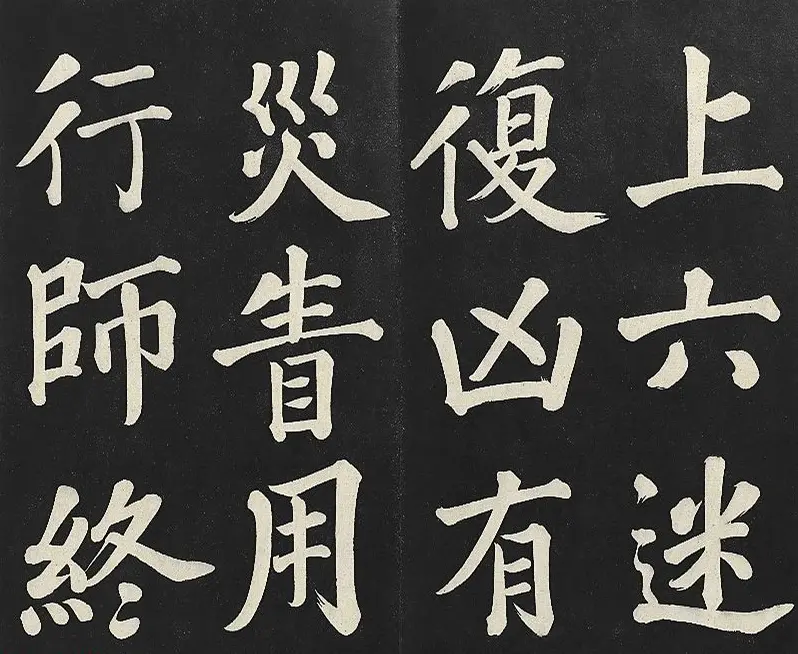 上六迷
復凶有
災眚用
行師終